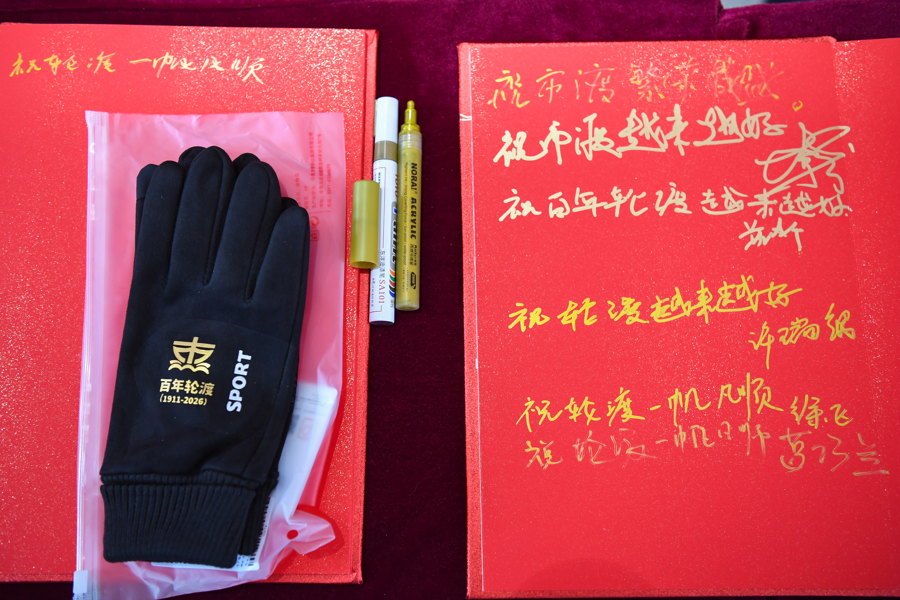 祝轮渡 一帆风顺
百年轮渡
(1911-2026)
SPORT
NORAI
ACRYLIC
SA101
祝市渡 繁荣昌盛
祝市渡越来越好。
祝百年轮渡 越来越好
祝轮渡越来越好
许瑞娟
祝轮渡一帆风顺 徐飞
祝轮渡一帆风顺